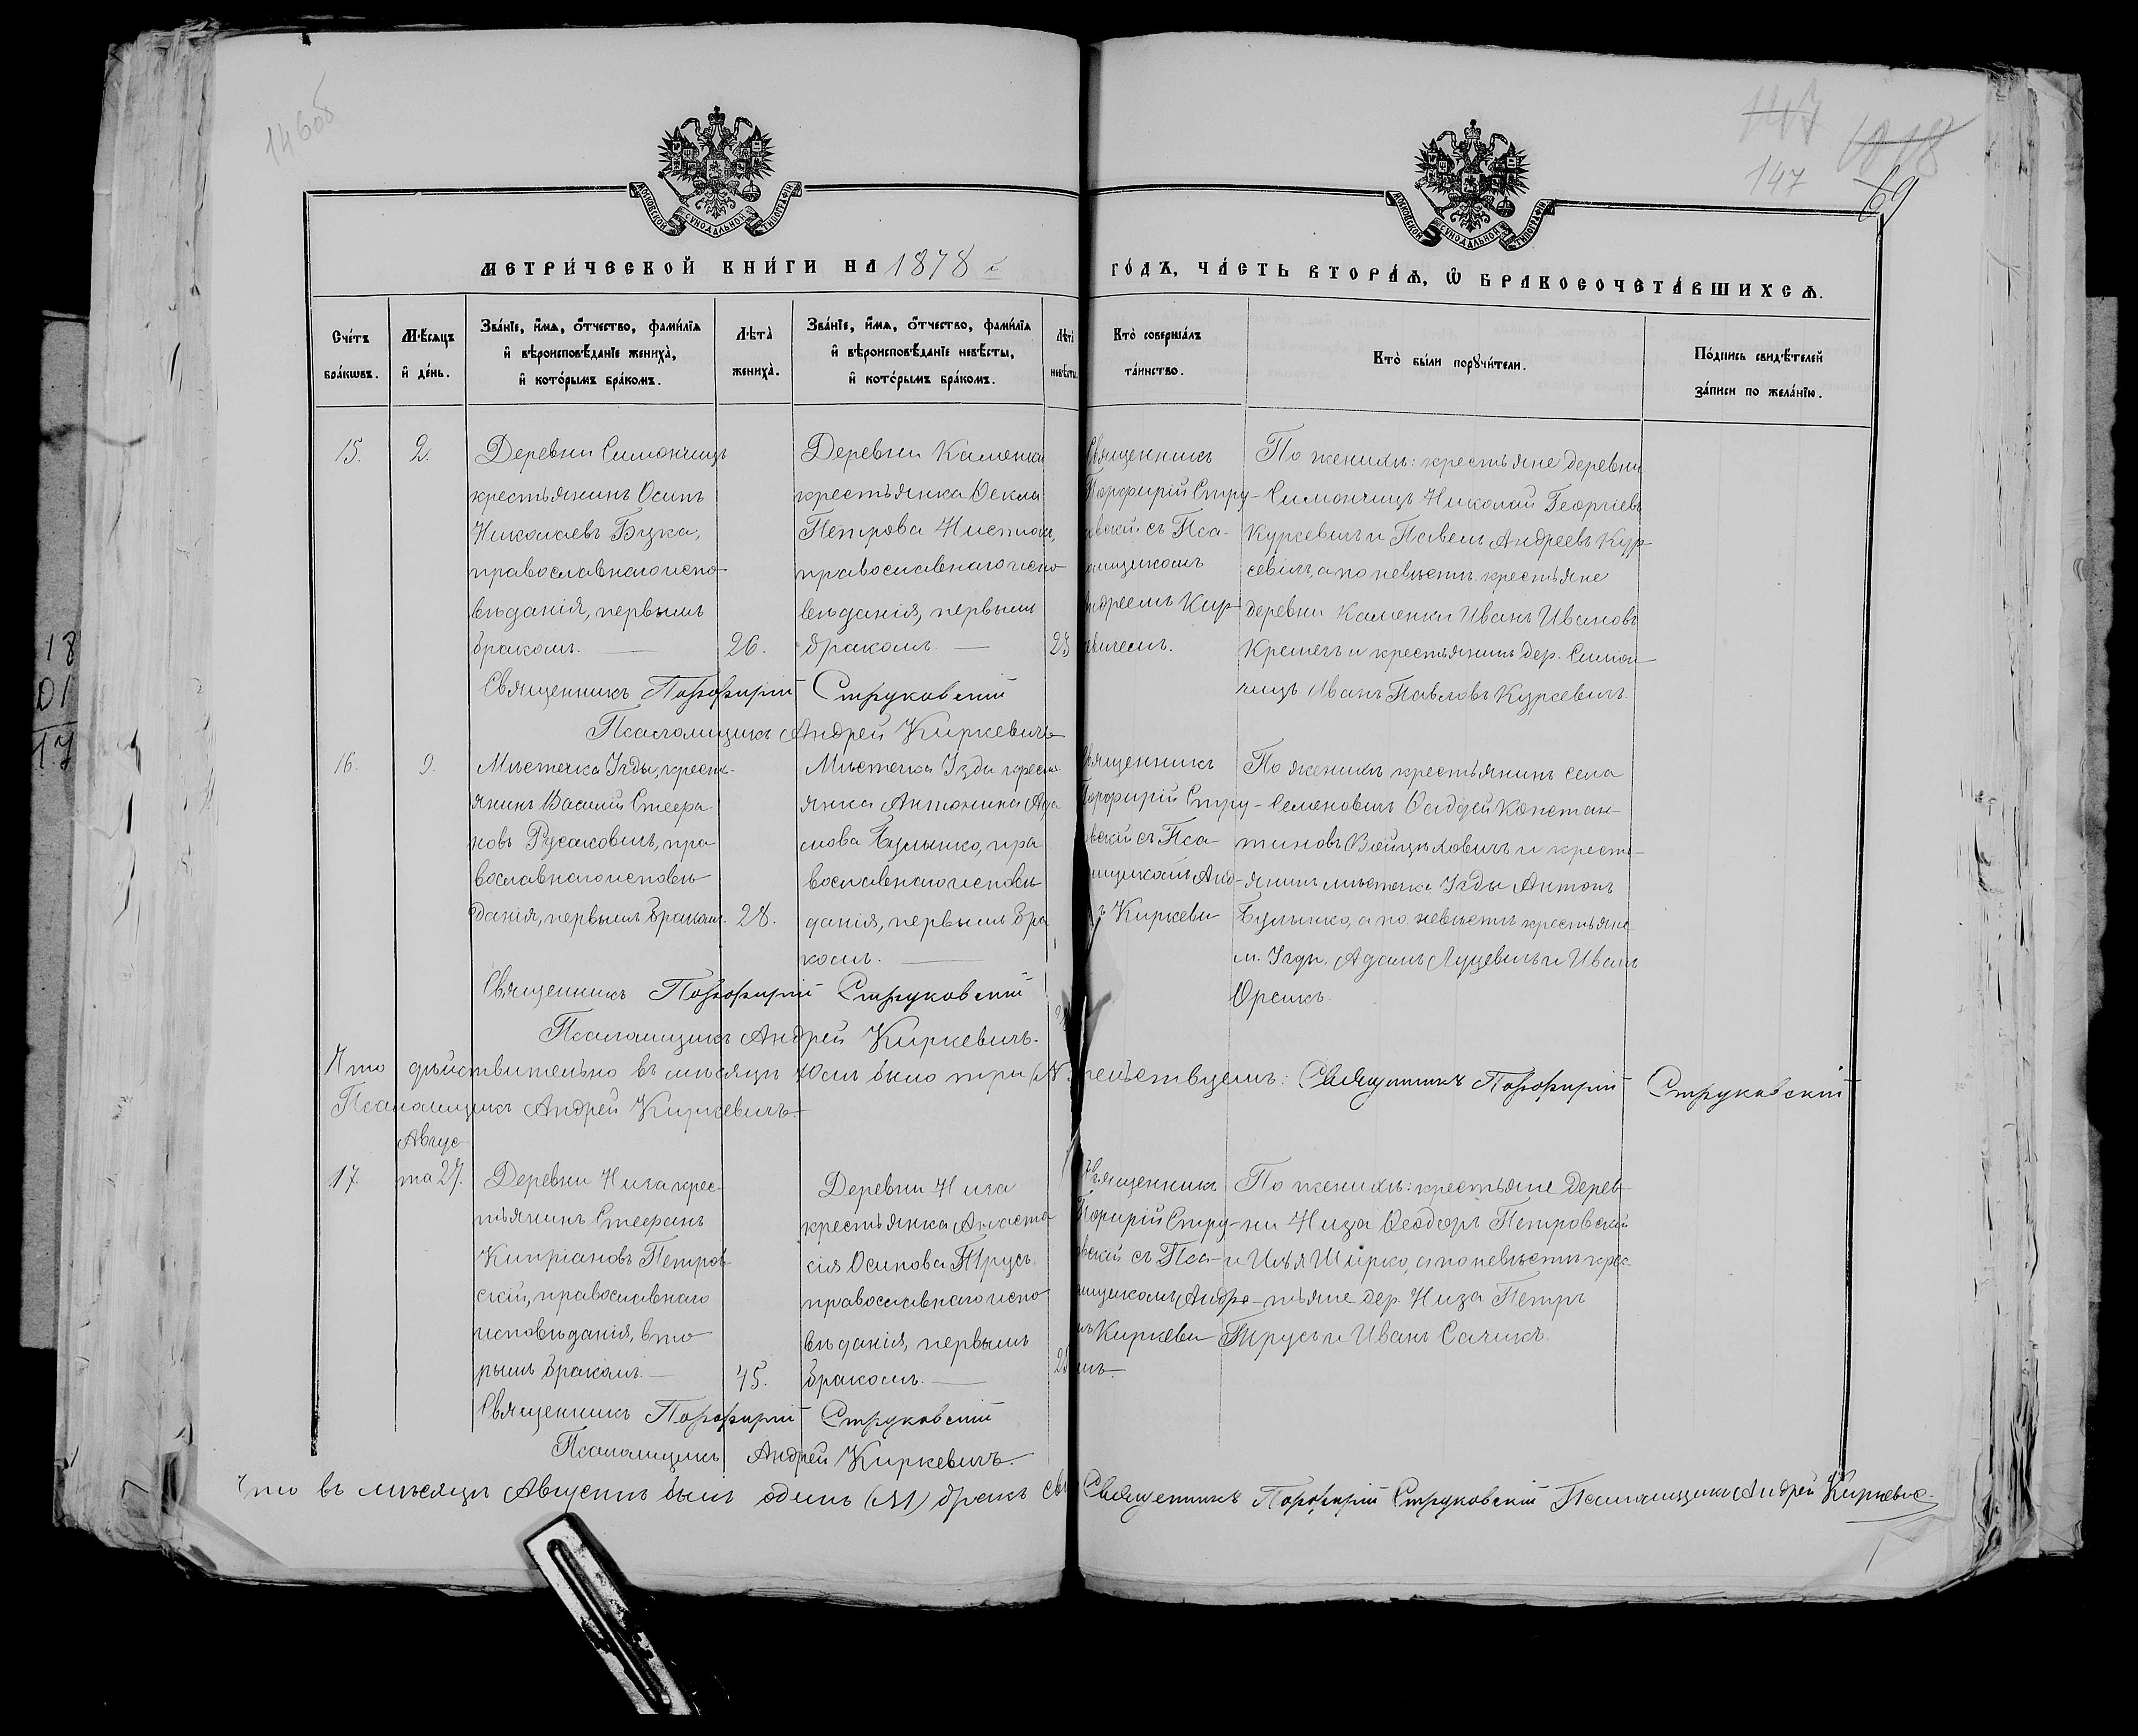 146об
147
147
69
МОСКОВСКОЙ СУНОДАЛЬНОЙ ТИПОГРАФІИ
МОСКОВСКОЙ СУНОДАЛЬНОЙ ТИПОГРАФІИ
МЕТРИ́ЧЕСКОЙ КНИ́ГИ НА 1878
ГО́ДЪ, ЧА́СТЬ ВТОРА́Ѧ, Ѿ БРАКОСОЧЕТА́ВШИХСѦ.
Сче́тъ бра́кωвъ.
Мѣ́сѧцъ и҆ де́нь.
Зва́нїе, и҆́мѧ, о҆́тчество, фамѝлїѧ и҆ вѣроисповѣ́данїе жениха̀, и҆ кото́рымъ бра́комъ.
Лѣта̀ жениха̀.
Зва́нїе, и҆́мѧ, о҆́тчество, фамѝлїѧ и҆ вѣроисповѣ́данїе невѣ́сты, и҆ кото́рымъ бра́комъ.
Лѣта̀ невѣ́сты
Кто̀ соверша́лъ та́инство.
Кто̀ бы́ли порꙋчи́тели.
По́дпись свидѣ́телей за́писи по жела́нїю.
15.
2.
Деревни Симончицъ
крестьянинъ Осипъ
Николаевъ Бука,
православнаго испо-
вѣданія, первымъ
бракомъ.
26.
Деревни Каменки
крестьянка Ѳекла
Петрова
православнаго испо
вѣданія, первымъ
бракомъ.
Священникъ
Порфирій Стру-
ковскій съ Пса-
ломщикомъ
Андреемъ Кир
кевичемъ.
По женихѣ: крестьяне деревни
Симончицъ Николай Георгіевъ
Курсевичъ и Павелъ Андреевъ Кур-
севичъ, а по невѣстѣ крестьяне
деревни Каменки Иванъ Ивановъ
и крестьянинъ дер. Симон-
чицъ Иванъ Павловъ Курсевичъ.
Священникъ Порфирій Струковскій
Псаломщикъ Андрей Киркевичъ
16.
9.
Мѣстечка Узды, кресть-
янинъ Василій Стефа
новъ Русаковичъ, пра
вославнаго исповѣ
данія, первымъ бракомъ.
28.
Мѣстечка Узды кресть
янка Антонина Ада
мова Булышко, пра
вославнаго исповѣ
данія, первымъ бра
комъ.
Священникъ
Порфирій Стру-
ковскій съ Пса-
ломщикомъ Анд-
Киркеви
По женихѣ крестьянинъ села
Семеновичъ Фаддей Констан-
тиновъ Войцѣховичъ и кресть-
янинъ мѣстечка Узды Антонъ
Булышко, а по невѣстѣ крестьяне
м. Узды, Адамъ Луцевичъ и Иванъ
Орсикъ.
Священникъ Порфирій Струковскій
Псаломщикъ Андрей Киркевичъ.
Что дѣйствительно въ мѣсяцѣ Юлѣ было три
Священникъ Порфирій Струковскій
Псаломщикъ Андрей Киркевичъ
Авгус-
17.
та 27.
Деревни Низа крес-
тьянинъ Стефанъ
Кипріановъ Петров-
скій, православнаго
исповѣданія, вто
рымъ бракомъ.
45.
Деревни Низа
крестьянка Анаста-
сія Осипова Трусъ
православнаго испо
вѣданія, первымъ
бракомъ.
Священникъ
Порфирій Стру-
ковскій съ Пса-
ломщикомъ Андре-
Киркеви
чъ.
По женихѣ: крестьяне дерев-
ни Низа Ѳеодоръ Петровскій
и Илья Ширко, а по невѣстѣ крес-
тьяне дер. Низа Петръ
Трусъ и Иванъ Сачикъ.
Священникъ Порфирій Струковскій
Псаломщикъ Андрей Киркевичъ.
Что въ мѣсяцѣ Августѣ былъ одинъ (№1) бракъ
Священникъ Порфирій Струковскій Псаломщикъ Андрей Киркевич